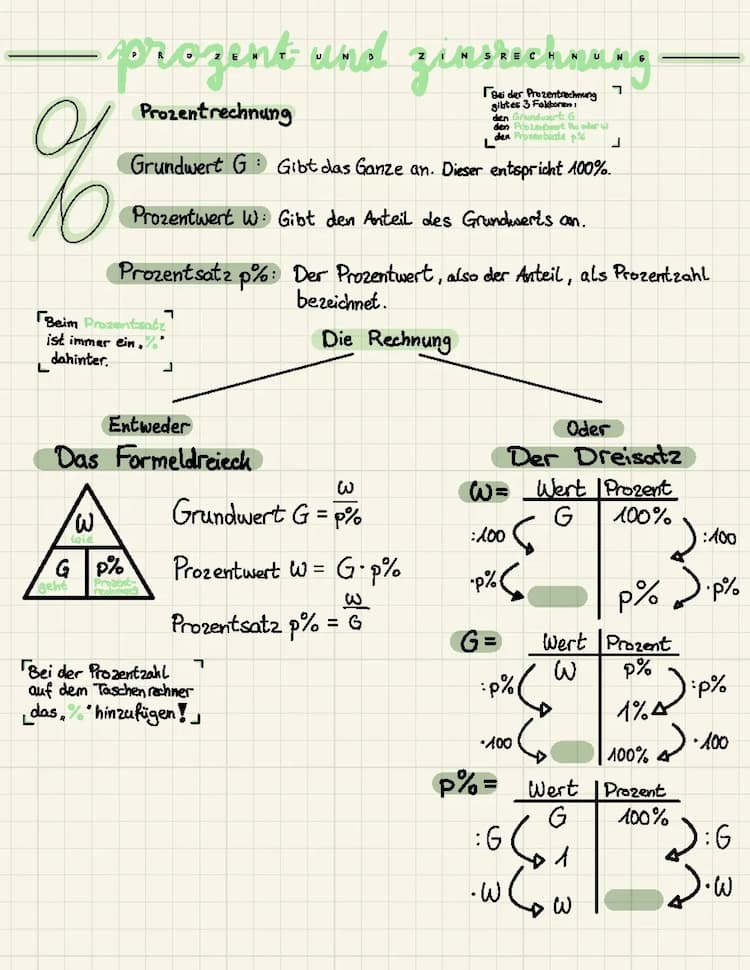 prozent- und zinsrechnung
PROZENT UND ZINSRECHNUNG
Prozentrechnung
Bei der Prozentrechnung
gibt es 3 Faktoren:
den Grundwert G
den Prozentwert Pw oder W
den Prozentsatz p%
Grundwert G: Gibt das Ganze an. Dieser entspricht 100%.
Prozentwert W: Gibt den Anteil des Grundwerts an.
Prozentsatz p%: Der Prozentwert, also der Anteil, als Prozentzahl
bezeichnet.
Beim Prozentsatz
ist immer ein „%"
dahinter.
Die Rechnung
Entweder
Das Formeldreieck
W
wie
G p%
geht
Grundwert G = W/p%
Prozentwert W = G·p%
Prozentsatz p% = W/G
Bei der Prozentzahl
auf dem Taschenrechner
das „%" hinzufügen!
Oder
Der Dreisatz
W= Wert Prozent
G 100%
:100 :100
·p% ·p%
p%
G= Wert Prozent
W p%
:p% :p%
1%
·100 ·100
100%
p%= Wert Prozent
G 100%
:G :G
1
·W ·W
W